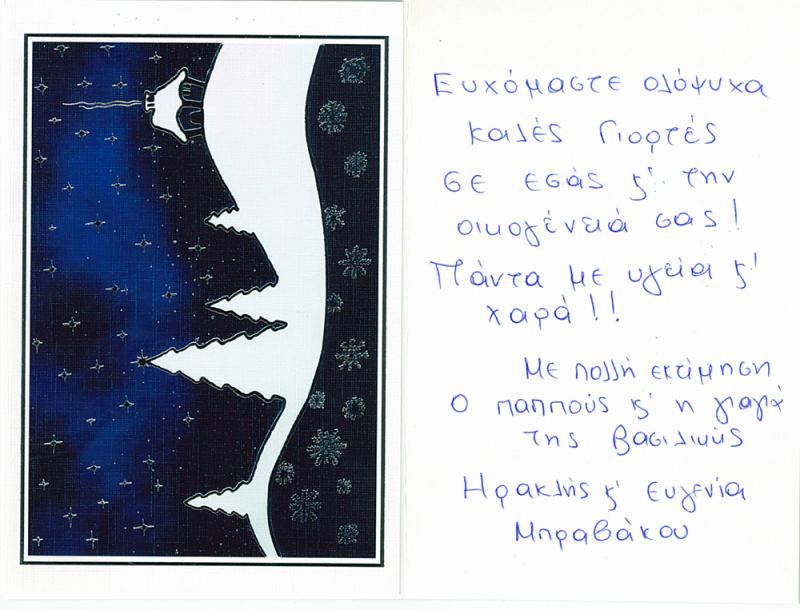 Ευχόμαστε ολόψυχα
καλές Γιορτές
σε εσάς κ' την
οικογένειά σας!
Πάντα με υγεία κ'
χαρά!!
Με πολλή εκτίμηση
Ο παππούς κ' η γιαγιά
της Βασιλικής
Ηρακλής κ' Ευγενία
Μπραβάκου